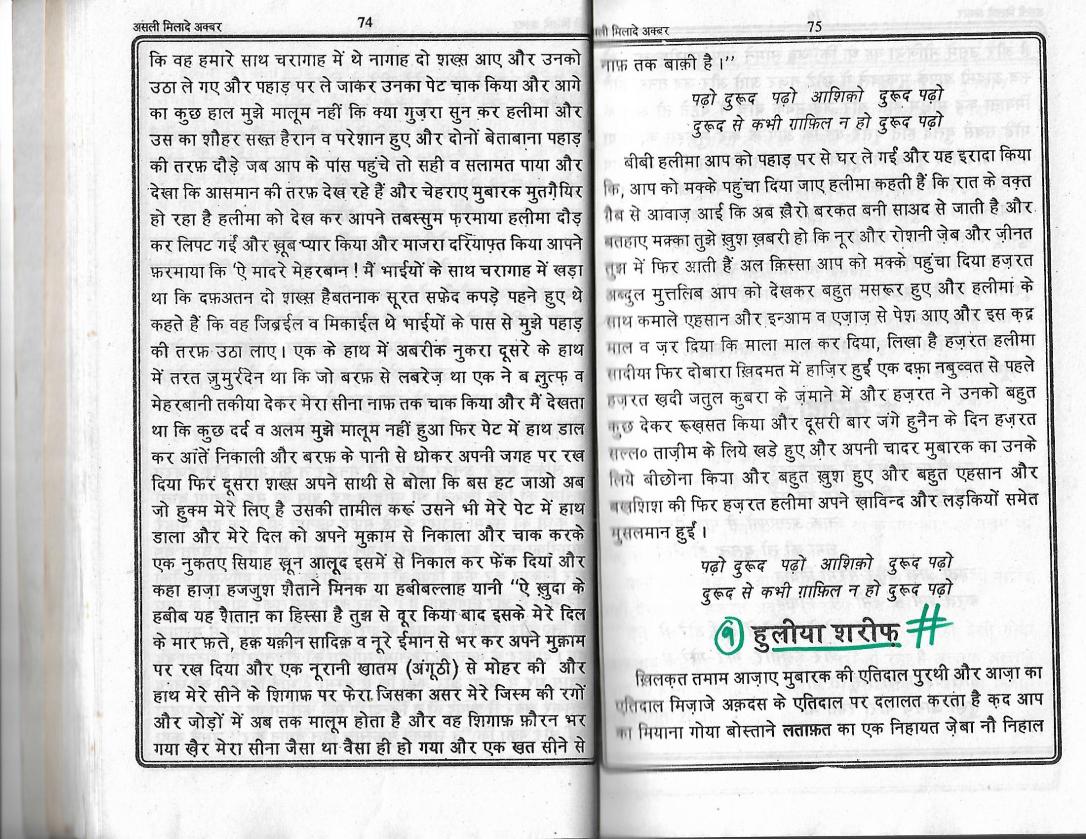 असली मिलादे अक्बर 74
कि वह हमारे साथ चरागाह में थे नागाह दो शख़्स आए और उनको
उठा ले गए और पहाड़ पर ले जाकर उनका पेट चाक किया और आगे
का कुछ हाल मुझे मालूम नहीं कि क्या गुज़रा सुन कर हलीमा और
उस का शौहर सख़्त हैरान व परेशान हुए और दोनों बेताबाना पहाड़
की तरफ़ दौड़े जब आप के पास पहुंचे तो सही व सलामत पाया और
देखा कि आसमान की तरफ़ देख रहे हैं और चेहराए मुबारक मुतग़ैयिर
हो रहा है हलीमा को देख कर आपने तबस्सुम फ़रमाया हलीमा दौड़
कर लिपट गईं और ख़ूब प्यार किया और माजरा दरियाफ़्त किया आपने
फ़रमाया कि 'ऐ मादरे मेहरबान ! मैं भाईयों के साथ चरागाह में खड़ा
था कि दफ़अतन दो शख़्स हैबतनाक सूरत सफ़ेद कपड़े पहने हुए थे
कहते हैं कि वह जिब्रईल व मिकाईल थे भाईयों के पास से मुझे पहाड़
की तरफ़ उठा लाए। एक के हाथ में अबरीक नुकरा दूसरे के हाथ
में तरत ज़ुमुर्रदेन था कि जो बरफ़ से लबरेज़ था एक ने ब लुत्फ़ व
मेहरबानी तकीया देकर मेरा सीना नाफ़ तक चाक किया और मैं देखता
था कि कुछ दर्द व अलम मुझे मालूम नहीं हुआ फिर पेट में हाथ डाल
कर आंतें निकाली और बरफ़ के पानी से धोकर अपनी जगह पर रख
दिया फिर दूसरा शख़्स अपने साथी से बोला कि बस हट जाओ अब
जो हुक्म मेरे लिए है उसकी तामील करूं उसने भी मेरे पेट में हाथ
डाला और मेरे दिल को अपने मुक़ाम से निकाला और चाक करके
एक नुकतए सियाह ख़ून आलूद इसमें से निकाल कर फेंक दिया और
कहा हाज़ा हजजुश शैताने मिनक या हबीबल्लाह यानी "ऐ ख़ुदा के
हबीब यह शैतान का हिस्सा है तुझ से दूर किया बाद इसके मेरे दिल
के मार फ़ते, हक़ यक़ीन सादिक़ व नूरे ईमान से भर कर अपने मुक़ाम
पर रख दिया और एक नूरानी ख़ातम (अंगूठी) से मोहर की और
हाथ मेरे सीने के शिगाफ़ पर फेरा जिसका असर मेरे जिस्म की रगों
और जोड़ों में अब तक मालूम होता है और वह शिगाफ़ फ़ौरन भर
गया ख़ैर मेरा सीना जैसा था वैसा ही हो गया और एक ख़त सीने से
असली मिलादे अक्बर 75
नाफ़ तक बाक़ी है।"
पढ़ो दुरूद पढ़ो आशिको दुरूद पढ़ो
दुरूद से कभी ग़ाफ़िल न हो दुरूद पढ़ो
बीबी हलीमा आप को पहाड़ पर से घर ले गईं और यह इरादा किया
कि, आप को मक्के पहुंचा दिया जाए हलीमा कहती हैं कि रात के वक़्त
ग़ैब से आवाज़ आई कि अब ख़ैरो बरकत बनी साअद से जाती है और
बतहाए मक्का तुझे ख़ुश ख़बरी हो कि नूर और रोशनी ज़ेब और ज़ीनत
तुझ में फिर आती हैं अल क़िस्सा आप को मक्के पहुंचा दिया हज़रत
अब्दुल मुत्तलिब आप को देखकर बहुत मसरूर हुए और हलीमां के
साथ कमाले एहसान और इन्आम व एज़ाज़ से पेश आए और इस क़द्र
माल व ज़र दिया कि माला माल कर दिया, लिखा है हज़रत हलीमा
सादीया फिर दोबारा ख़िदमत में हाज़िर हुईं एक दफ़ा नबुव्वत से पहले
हज़रत ख़दी जतुल कुबरा के ज़माने में और हज़रत ने उनको बहुत
कुछ देकर रूख़्सत किया और दूसरी बार जंगे हुनैन के दिन हज़रत
सल्ल० ताज़ीम के लिये खड़े हुए और अपनी चादर मुबारक का उनके
लिये बीछोना किया और बहुत ख़ुश हुए और बहुत एहसान और
बख़शिश की फिर हज़रत हलीमा अपने ख़ाविन्द और लड़कियों समेत
मुसलमान हुईं।
पढ़ो दुरूद पढ़ो आशिक़ो दुरूद पढ़ो
दुरूद से कभी ग़ाफ़िल न हो दुरूद पढ़ो
१ हुलीया शरीफ़ #
ख़िलक़त तमाम आज़ाए मुबारक की एतिदाल पुरथी और आज़ा का
एतिदाल मिज़ाजे अक़दस के एतिदाल पर दलालत करता है क़द आप
का मियाना गोया बोस्ताने लताफ़त का एक निहायत ज़ेबा नौ निहाल